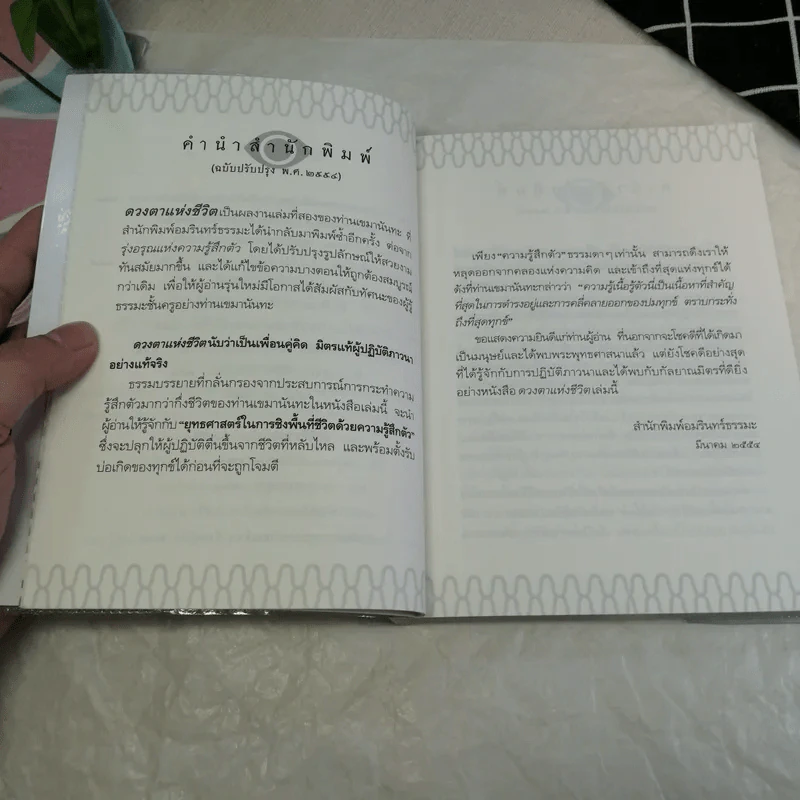 คำนำสำนักพิมพ์
(ฉบับปรับปรุง พ.ศ. ๒๕๕๔)
ดวงตาแห่งชีวิตเป็นผลงานเล่มที่สองของท่านเขมานันทะ ที่
สำนักพิมพ์อมรินทร์ธรรมะได้นำกลับมาพิมพ์ซ้ำอีกครั้ง ต่อจาก
รุ่งอรุณแห่งความรู้สึกตัว โดยได้ปรับปรุงรูปลักษณ์ให้สวยงาม
ทันสมัยมากขึ้น และได้แก้ไขข้อความบางตอนให้ถูกต้องสมบูรณ์
กว่าเดิม เพื่อให้ผู้อ่านรุ่นใหม่มีโอกาสได้สัมผัสกับทัศนะของผู้รู้
ธรรมะชั้นครูอย่างท่านเขมานันทะ
ดวงตาแห่งชีวิตนับว่าเป็นเพื่อนคู่คิด มิตรแท้ผู้ปฏิบัติภาวนา
อย่างแท้จริง
ธรรมบรรยายที่กลั่นกรองจากประสบการณ์การกระทำความ
รู้สึกตัวมากว่ากึ่งชีวิตของท่านเขมานันทะในหนังสือเล่มนี้ จะนำ
ผู้อ่านให้รู้จักกับ “ยุทธศาสตร์ในการชิงพื้นที่ชีวิตด้วยความรู้สึกตัว”
ซึ่งจะปลุกให้ผู้ปฏิบัติตื่นขึ้นจากชีวิตที่หลับไหล และพร้อมตั้งรับ
บ่อเกิดของทุกข์ได้ก่อนที่จะถูกโจมตี
เพียง “ความรู้สึกตัว” ธรรมดาๆ เท่านั้น สามารถดึงเราให้
หลุดออกจากคลองแห่งความคิด และเข้าถึงที่สุดแห่งทุกข์ได้
ดังที่ท่านเขมานันทะกล่าวว่า “ความรู้เนื้อรู้ตัวนี่เป็นเนื้อหาที่สำคัญ
ที่สุดในการดำรงอยู่และการคลี่คลายออกของปมทุกข์ ตราบกระทั่ง
ถึงที่สุดทุกข์”
ขอแสดงความยินดีแก่ท่านผู้อ่าน ที่นอกจากจะโชคดีที่ได้เกิดมา
เป็นมนุษย์และได้พบพระพุทธศาสนาแล้ว แต่ยังโชคดีอย่างสุด
ที่ได้รู้จักกับการปฏิบัติภาวนาและได้พบกับกัลยาณมิตรที่ดียิ่ง
อย่างหนังสือ ดวงตาแห่งชีวิต เล่มนี้
สำนักพิมพ์อมรินทร์ธรรมะ
มีนาคม ๒๕๕๔